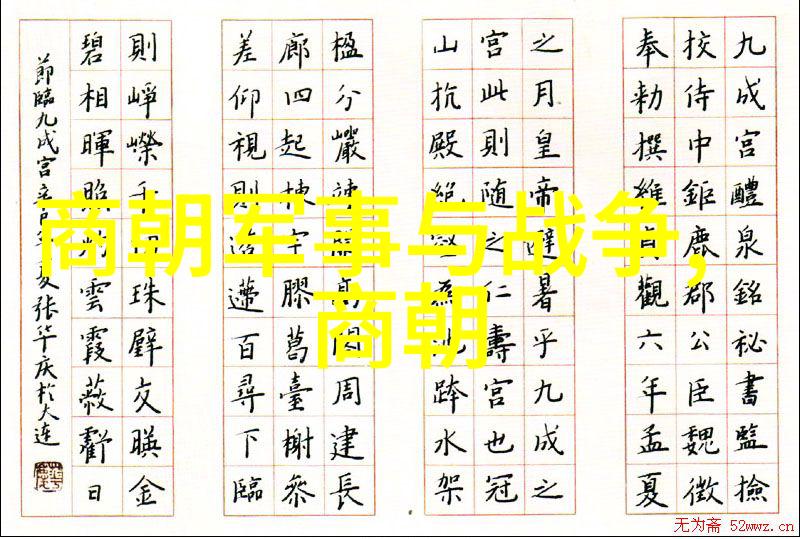 九成宮醴泉銘祕書監撿
挍侍中鉅鹿郡公臣魏徵
奉勑撰維貞觀六年孟夏
之月皇帝避暑乎九成之
宮此則随之仁壽宮也冠
山抗殿絕壑為池跨水架
楹分巖竦闕高閣周建長
廊四起棟宇膠葛臺榭參
差仰視則迢遰百尋下臨
則崢嶸千仞珠璧交暎金
碧相暉照灼雲霞蔽虧日
節臨九成宮辛巳年夏张华庆於大连
商朝军事与战争,
商朝
无为斋 52wwz.cn